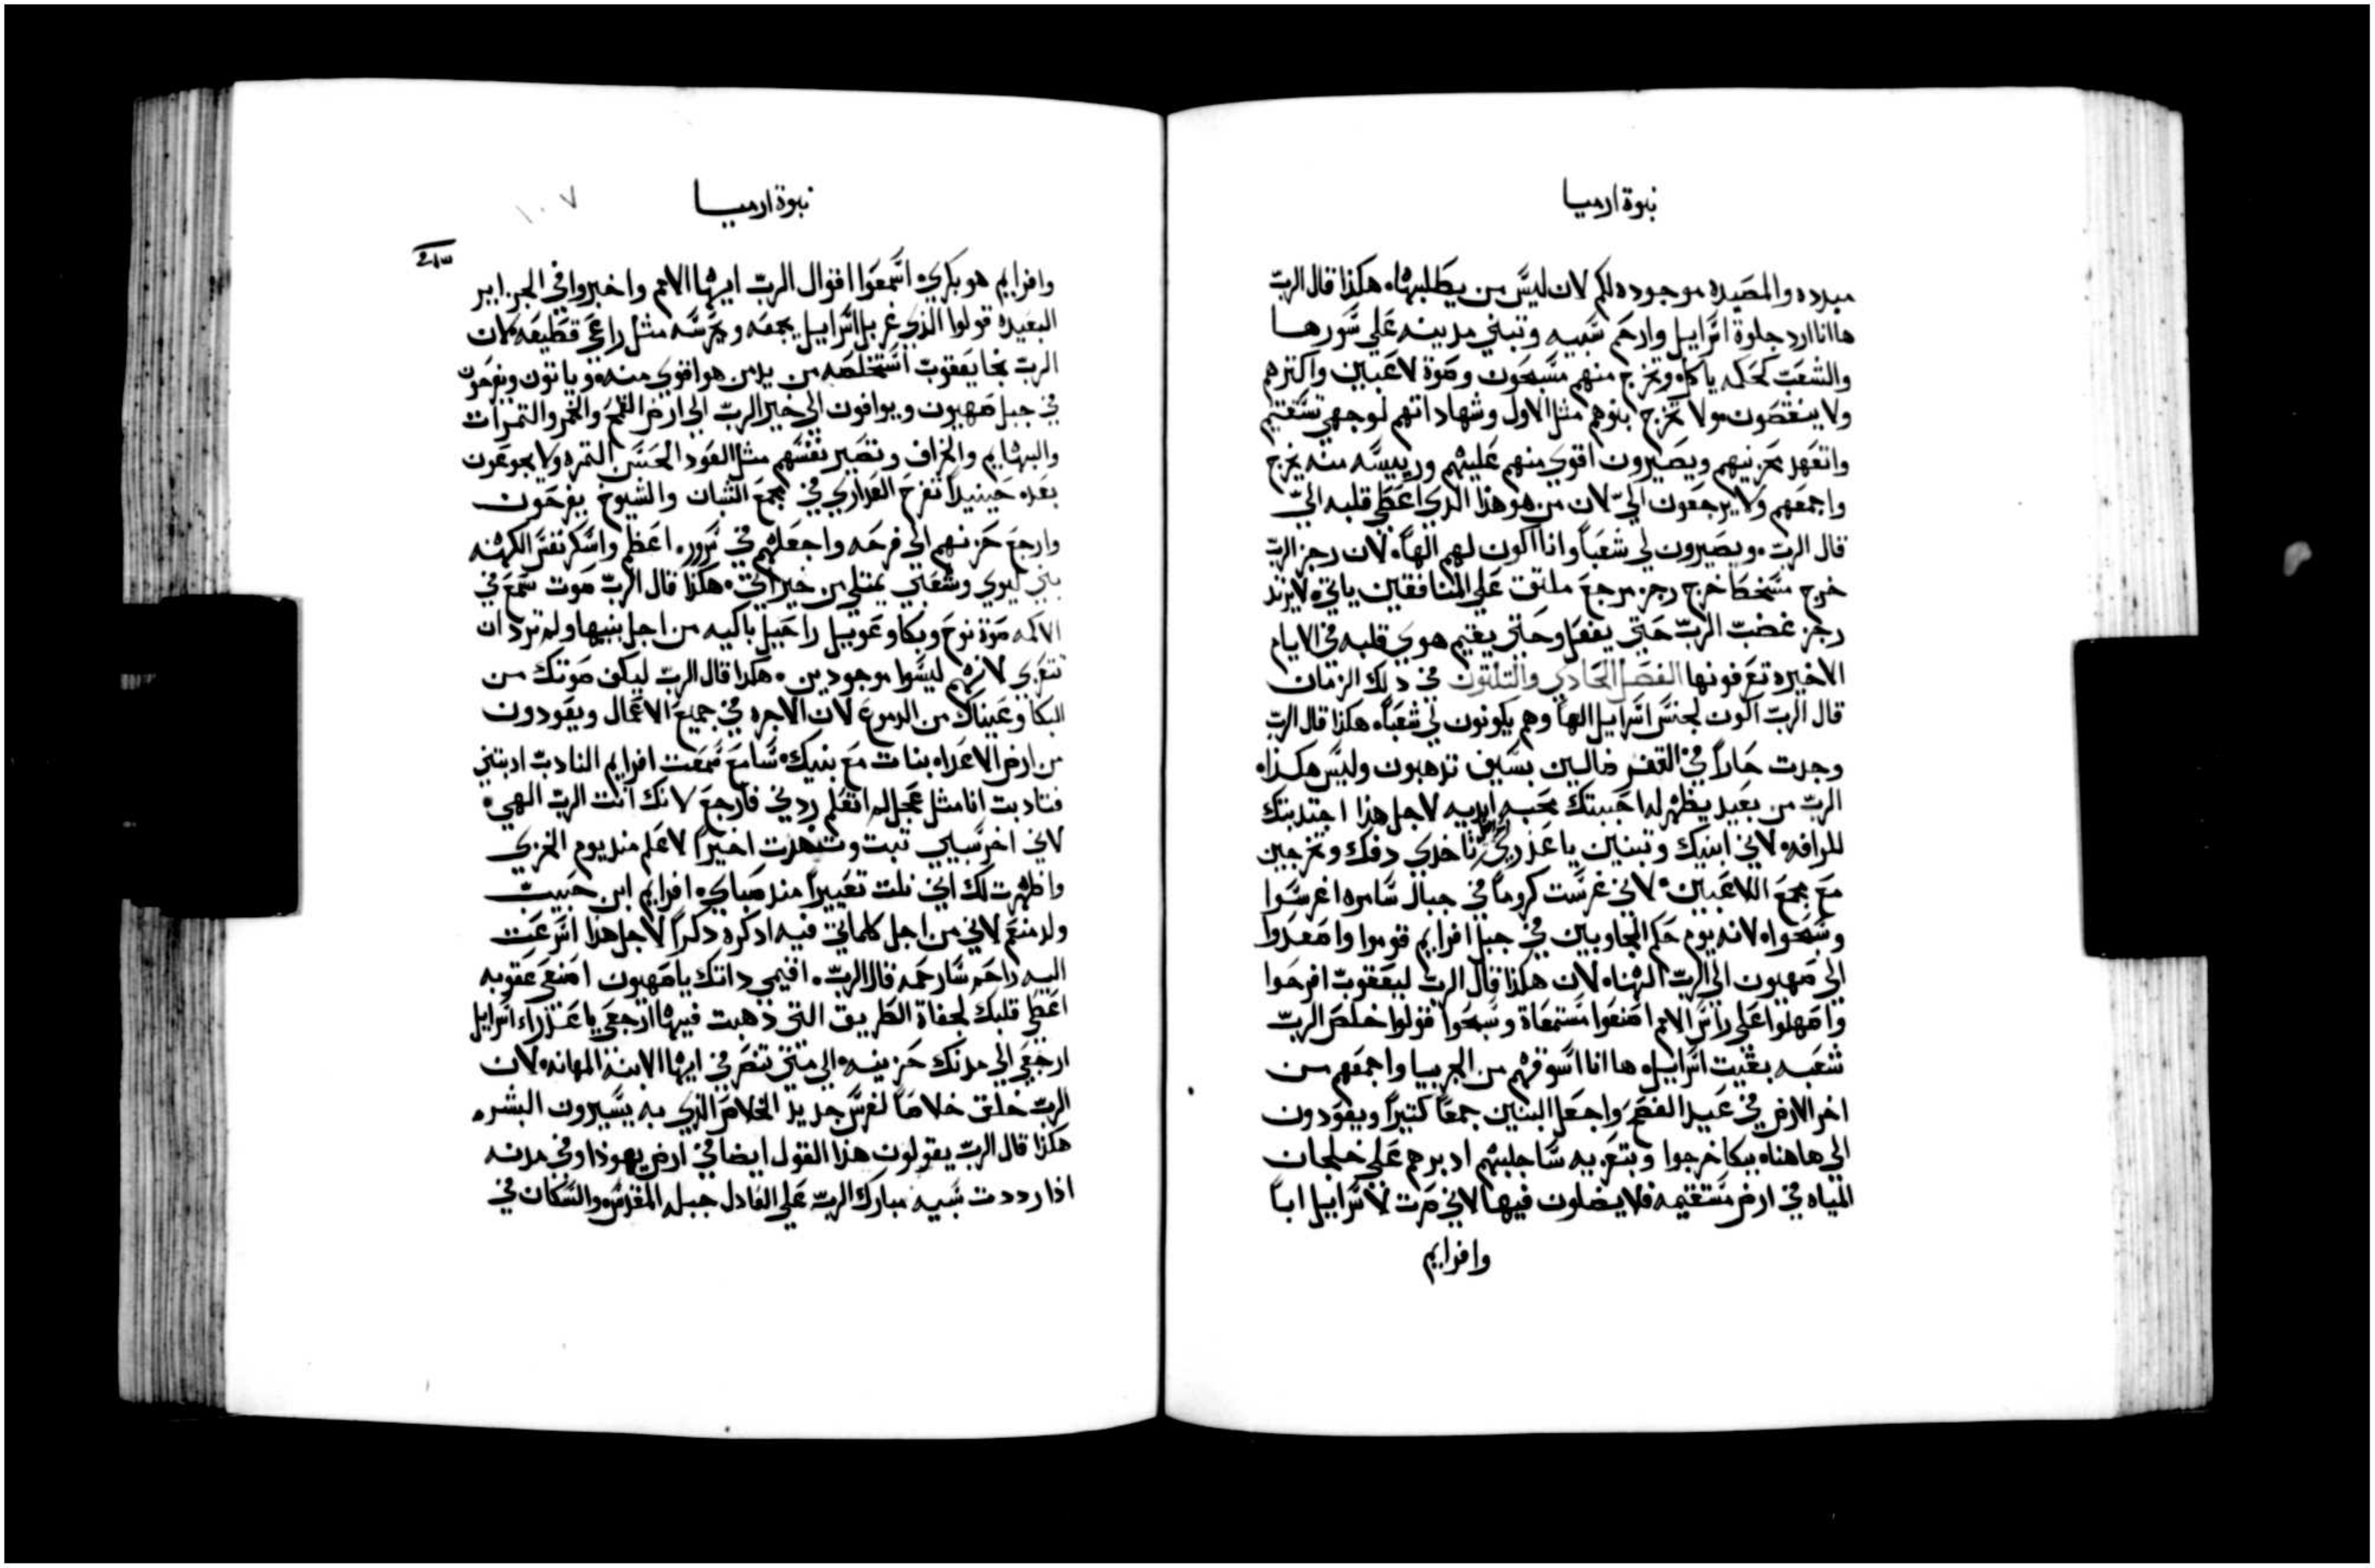 نبوة ارميا
مبدده والمصيده موجوده لكم لان ليس من يطلبها، هكذا قال الربّ
هاانا ارد جلوة اسرايل وارحم سبيه وتبني مدينه علي سورها
والشعب كحكمه ياكل، وتخرج منهم مسبحون وصوة لاعبين واكترهم
ولا ينقصون، ولا يخرج بنوهم مثل الاول وشهاداتهم لوجهي تستقيم
واتعهد محزنيهم ويصيرون اقوي منهم عليهم ورييسه منه يخرج
واجمعهم ولا يرجعون اليّ لان من هو هذا الدي اعطي قلبه اليّ
قال الربّ، ويصيرون لي شعباً وانا اكون لهم الهاً، لان رجز الربّ
خرج مسخطا خرج رجز مرجع ملتق علي المنافقين ياتي، لا يرتد
رجز غضب الربّ حتي يفعل وحتي يقيم هوي قلبه في الايام
الاخيره تعرفونها الفصل الحادي والتلتون في دلك الزمان
قال الربّ اكون لجنس اسرايل الهاً وهم يكونون لي شعباً، هكذا قال الربّ
وجدت حاراً في القفر ضالين بسيف تذهبون وليس هكذا،
الربّ من بعيد يظهر له احببتك محبه ابديه لاجل هذا اجتدبتك
للرافه، لاني ابنيك وتبنين يا عدري تاخدي دفك وتخرجين
مع مجمع اللاعبين، لاني غرست كروماً في جبال سامره اغرسوا
وسبحوا، لانه يوم حكم المجاوبين في جبل افرايم قوموا واصعدوا
الي صهيون الي الربّ الهنا، لان هكذا قال الربّ ليعقوبّ افرحوا
واصهلوا علي راس الامم اصنعوا مستمعاة وسبحوا قولوا خلص الربّ
شعبه بقيت اسرايل، هاانا اسوقهم من الجربيا واجمعهم من
اخر الارض في عيد الفصح واجعل البنين جمعاً كتيراً ويعودون
الي هاهنا، ببكا خرجوا وبتعزيه ساجلبهم ادبرهم علي خلجان
المياه في ارض مستقيمه فلا يضلون فيها لاني صرت لاسراييل اباً
وافرايم
نبوة ارميا
١٠٧
وافرايم هو بكري، اسمعوا اقوال الربّ ايها الامم واخبروا في الجزاير
البعيده قولوا الذي غربل اسراييل يجمعه ويحرسه مثل راعي قطيعه، لان
الربّ نجا يعقوبّ استخلصه من يد من هو اقوي منه، وياتون ويفرحون
في جبل صهيون ويوافون الي خير الربّ الي ارض القمح والخمر والتمرات
والبهايم والخراف وتصير نفسهم مثل العود الحسن التمره ولا يجوعون
بعد، حينيداً تفرح العداري في مجمع الشبان والشيوخ يفرحون
وارجع حزنهم الي فرحه واجعلهم في سرور، اعظم واسكر نفس الكهنه
بني ليوي وشعبي يمتلي من خيراتي، هكذا قال الربّ صوت سمع في
الاكمه صوة نوح وبكا وعويل راحيل باكيه من اجل بنيها ولم ترد ان
تتعزي لانهم ليسوا موجودين، هكدا قال الربّ ليكف صوتك من
البكا وعيناك من الدموع لان الاجره في جميع الاعمال ويعودون
من ارض الاعدا، بنات مع بنيك، سامع سمعت افرايم النادبّ ادبتني
فتادبت انا مثل عجل لم اتعلم ردني فارجع لانك انت الربّ الهي،
لاني اخر سبيي تبت وتنهدت اخيراً لاعلم مند يوم الخزي
واظهرت لك اني نلت تعييراً مند صباي، افرايم ابن حبيبّ
ولد منعم لاني من اجل كلماتي فيه ادكره دكراً لاجل هذا اسرعت
اليه راحم سارحمه قال الربّ، اقيمي داتك يا صهيون اصنعي عقوبه
اعطي قلبك لجفاة الطريق التي ذهبت فيها ارجعي يا عذراء اسرايل
ارجعي الي مدنك حزينه، الي متي تنصرفي ايها الابنه المهانه، لان
الربّ خلق خلاصاً لغرس جديد الخلاص الذي به يسيرون البشر،
هكذا قال الربّ يقولون هذا القول ايضا في ارض يهوذا وفي مدنه
اذا رددت سبيه مبارك الربّ علي العادل جبله المقدس، والسكان في